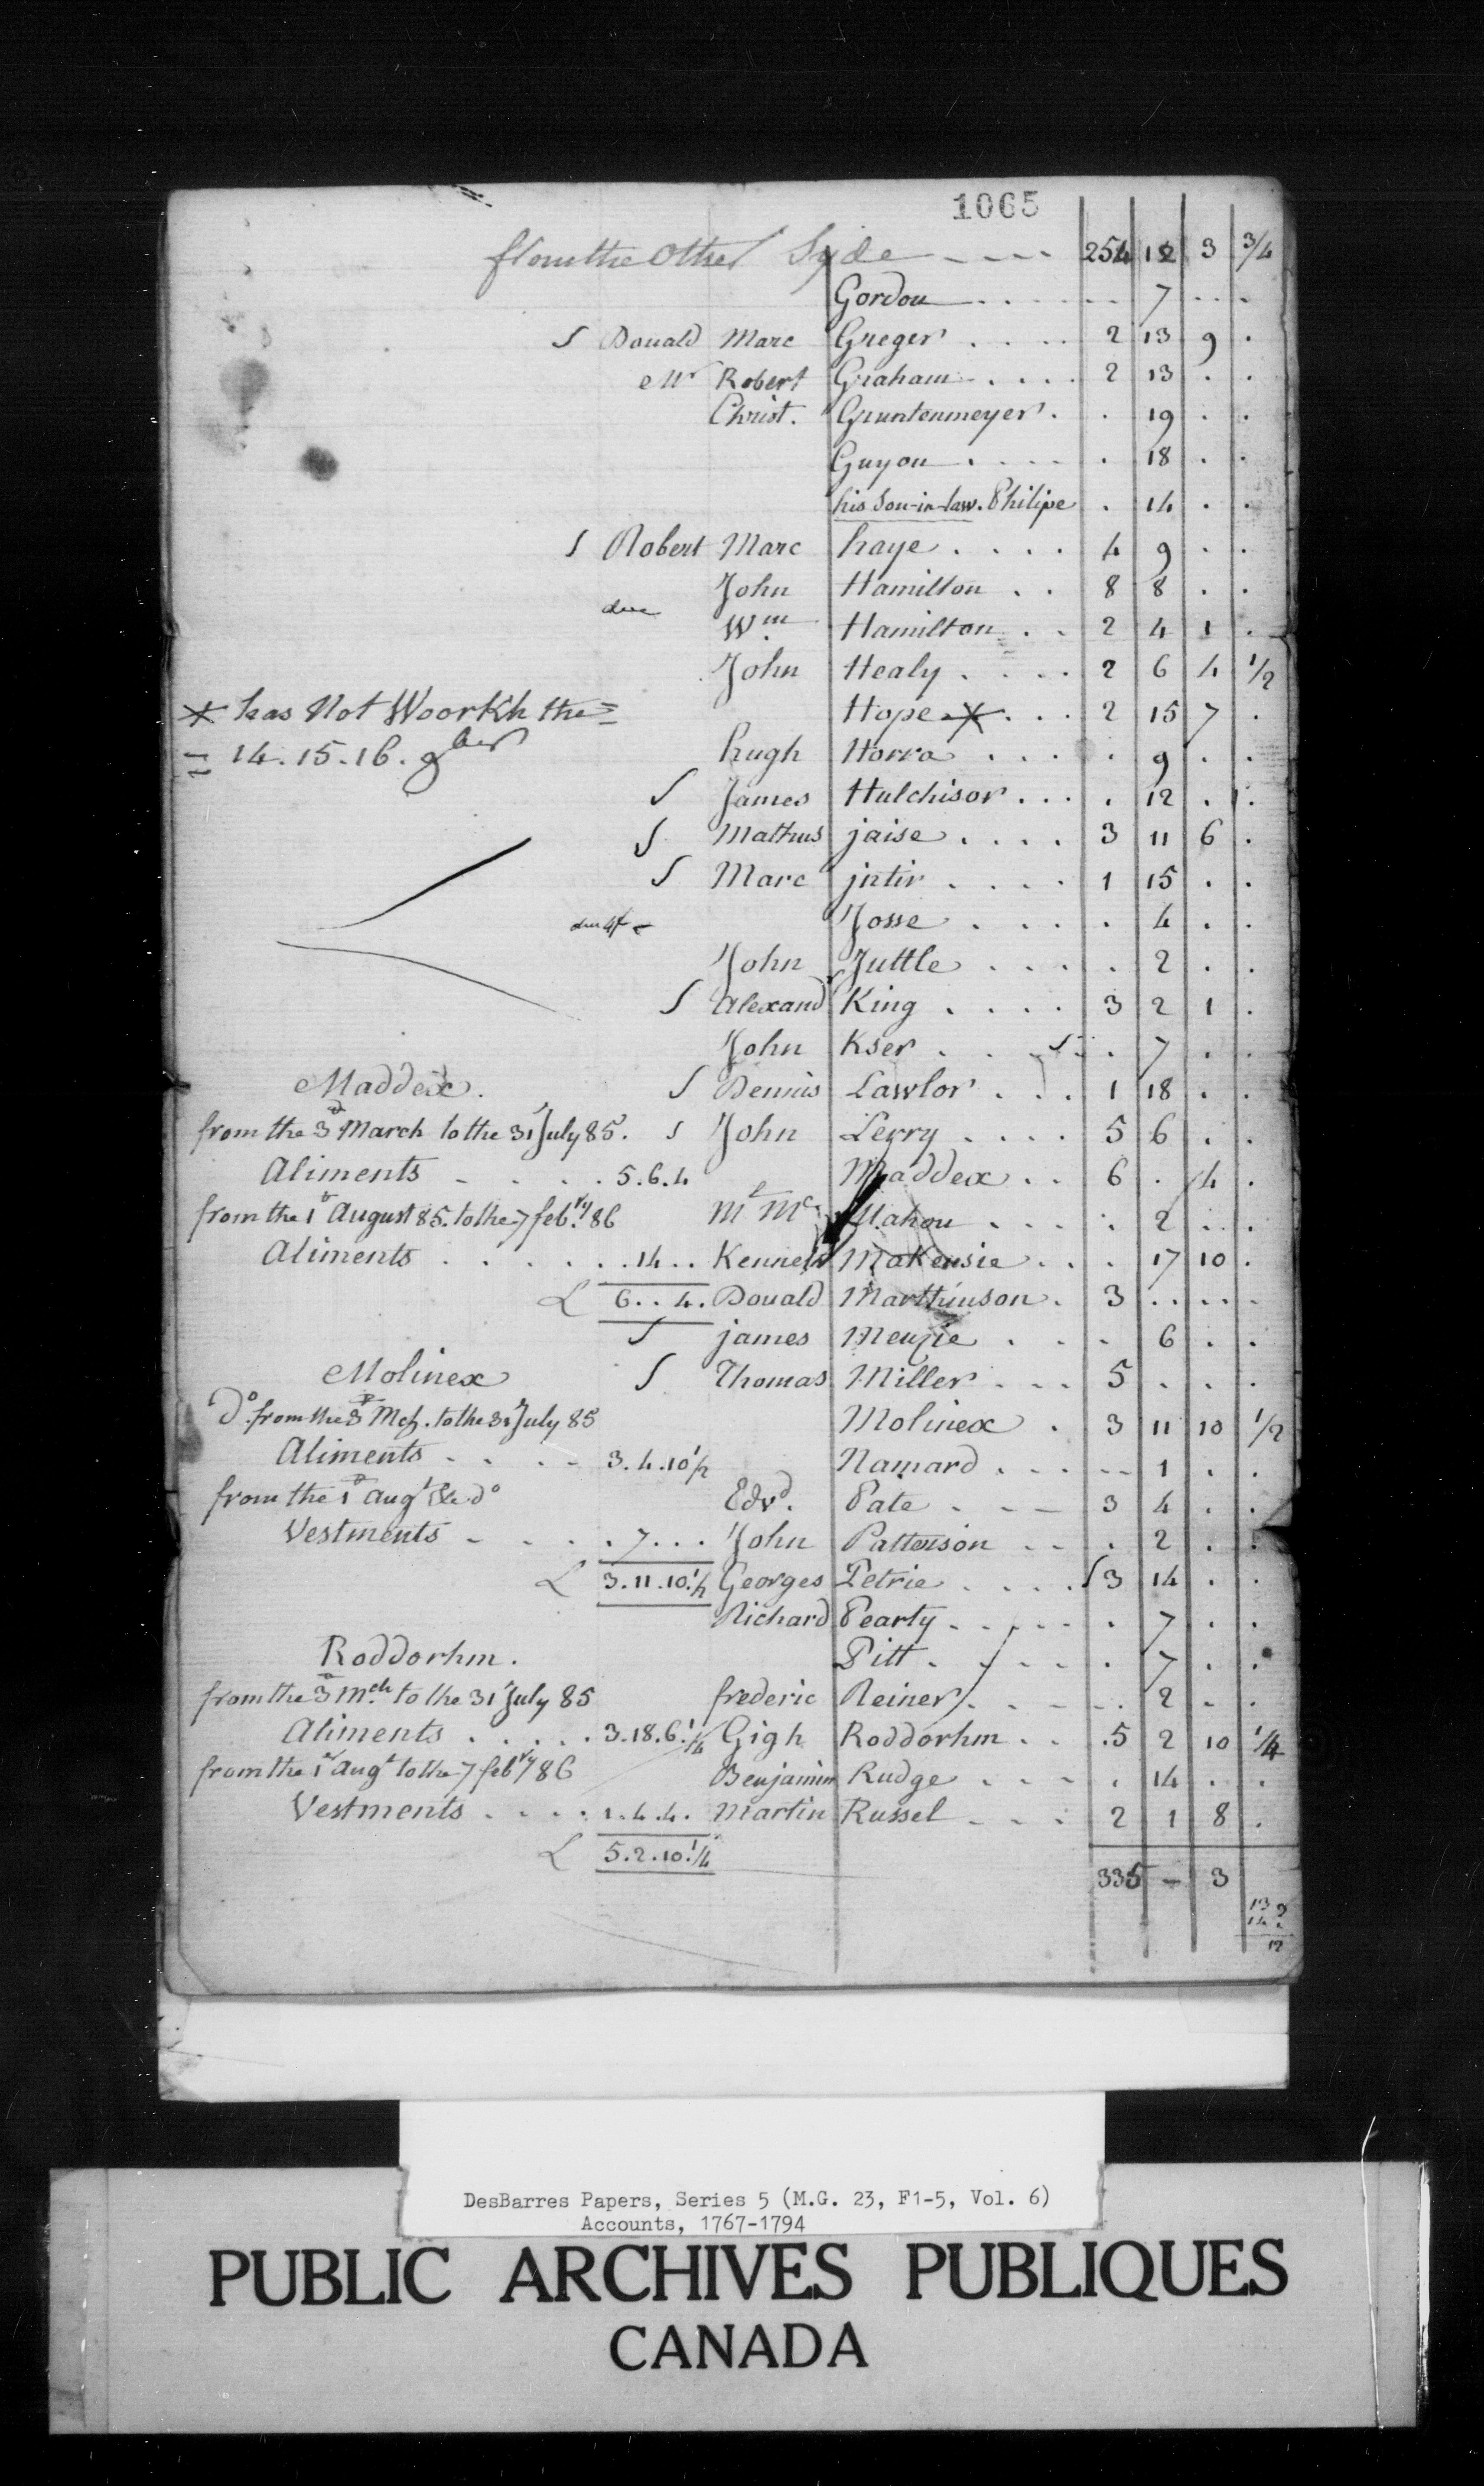 1065
from the Other Syde - - - - 254 12 3 3/4
Gordon . . . . - - 7 . . .
S Donald Marc Greger . . . . 2 13 9 .
Mr Robert Graham . . . . 2 13 . .
Christ. Gruntenmeyer . . 19 . .
Guyon . . . . . 18 . .
his Son-in-law. Philipe . 14 . .
S Robert Marc haye . . . . 4 9 . .
John Hamilton . . 8 8 . .
due
Wm Hamilton . . 2 4 1 .
John Healy . . . . 2 6 4 1/2
* has Not Woorkh the =
Hope * . . . 2 15 7 .
= 14. 15. 16. 9ber
hugh Horra . . . . 9 . .
S James Hutchisor . . . . 12 . .
S Mathus jaise . . . . 3 11 6 .
S Marc jntir . . . . 1 15 . .
Josse . . . . 4 . .
John Juttle . . . . 2 . .
S Alexand King . . . . 3 2 1 .
John Kser . . . S . 7 . .
Maddex. S Dennis Lawlor . . . 1 18 . .
from the 3d March to the 31 July 85. S John Lerry . . . . 5 6 . .
Aliments - . . . 5.6.4 Maddex . . 6 . 4 .
from the 1t August 85. to the 7 febry 86 Mt Mc. Mahon . . . . 2 . .
Aliments . . . . . . 14 . . Kenneh MaKensie . . . 17 10 .
£ 6 . . 4. Donald Marthinson . 3 . . . .
S james Menzie . . . 6 . .
Molinex S Thomas Miller . . . 5 . . .
Do. from the 3d Mch. to the 31 July 85 Molinex . 3 11 10 1/2
Aliments - . . - 3.4.10 1/2 Namard . . . - - 1 . .
from the 1o Augt &c do Edvd. Pate . - - 3 4 . .
Vestments - . . . 7 . . . John Patterson - - . 2 . .
£ 3.11.10.1/2 Georges Petrie . . . . S 3 14 . .
Richard Pearty . . . . . 7 . .
Roddorhm. Pitt . . . . . 7 . .
from the 3d Mch to the 31 July 85 frederic Reiner . . . . . 2 . .
Aliments . . . . . 3.18.6.1/4 Gigh Roddorhm . . . 5 2 10 1/4
from the 1st Augt to the 7 febry 86 Benjamin Rudge . . . . 14 . .
Vestments . . . . 1.4.4. Martin Russel . . . 2 1 8 .
£ 5.2.10.1/4
335 - 3
DesBarres Papers, Series 5 (M.G. 23, F1-5, Vol. 6)
Accounts, 1767-1794
PUBLIC ARCHIVES PUBLIQUES
CANADA